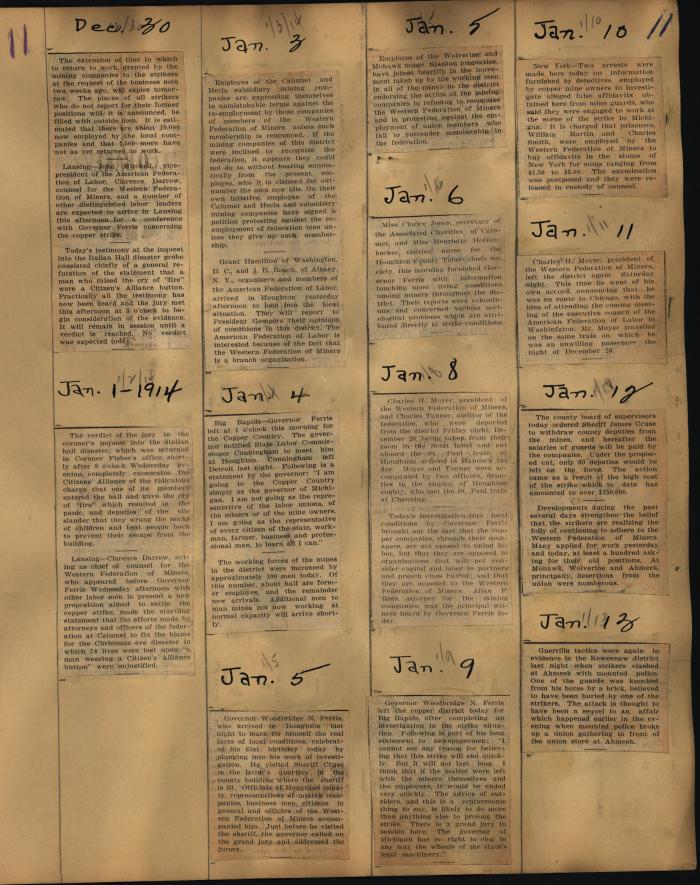 11
Dec. 30
The extension of time in which
to return to work, granted by the
mining companies to the strikers
at the request of the business men
two weeks ago, will expire tomor-
row. The places of all strikers
who do not report for their former
positions will, it is announced, be
filled with outside men. It is esti-
mated that there are about 10,000
now employed by the local com-
panies and that 2,500 more have
not as yet returned to work.
Lansing—John Mitchell, vice-
president of the American Federa-
tion of Labor, Clarence Darrow,
counsel for the Western Federa-
tion of Miners, and a number of
other distinguished labor leaders
are expected to arrive in Lansing
this afternoon for a conference
with Governor Ferris concerning
the copper strike.
Today's testimony at the inquest
into the Italian Hall disaster probe
consisted chiefly of a general re-
futation of the statement that a
man who raised the cry of "fire"
wore a Citizen's Alliance button.
Practically all the testimony has
now been heard and the jury met
this afternoon at 3 o'clock to be-
gin consideration of the evidence.
It will remain in session until a
verdict is reached. No verdict
was expected today.
Jan. 1-1914
The verdict of the jury in the
coroner's inquest into the Italian
hall disaster, which was returned
in Coroner Fisher's office short-
ly after 8 o'clock Wednesday ev-
ening, completely exonerates the
Citizens' Alliance of the ridiculous
charge that one of its members
entered the hall and gave the cry
of "fire" which resulted in the
panic, and deputies of the vile
slander that they wrung the necks
of children and kept people back
to prevent their escape from the
building.
Lansing—Clarence Darrow, act-
ing as chief of counsel for the
Western Federation of Miners,
who appeared before Governor
Ferris Wednesday afternoon with
other labor men to present a new
proposition aimed to settle the
copper strike, made the startling
statement that the efforts made by
attorneys and officers of the federa-
tion at Calumet to fix the blame
for the Christmas eve disaster in
which 74 lives were lost upon "a
man wearing a Citizen's Alliance
button" were unjustified.
1/3/14
Jan. 3
Employes of the Calumet and
Hecla subsidiary mining com-
panies are expressing themselves
in unmistakable terms against the
re-employment by those companies
of members of the Western
Federation of Miners unless such
membership is renounced. If the
mining companies of this district
were inclined to recognize the
federation, it appears they could
not do so without hearing empha-
tically from the present em-
ployes, who it is claimed far out-
number the men now idle. On their
own intiative, employes of the
Calumet and Hecla and subsidiary
mining companies have signed a
petition protesting against the re-
employment of federation men un-
less they give up such member-
ship.
Grant Hamilton of Washington,
D. C., and J. E. Roach, of Albany,
N. Y., organizers and members of
the American Federation of Labor,
arrived in Houghton yesterday
afternoon to look into the local
situation. They will report to
President Gompers their opinions
of conditions in this district. The
American Federation of Labor is
interested because of the fact that
the Western Federation of Miners
is a branch organization.
Jan. 4
Big Rapids—Governor Ferris
left at 1 o'clock this morning for
the Copper Country. The gover-
nor notified State Labor Commis-
sioner Cunningham to meet him
at Houghton. Cunningham left
Detroit last night. Following is a
statement by the governor: "I am
going to the Copper Country
simply as the governor of Michi-
gan. I am not going as the repre-
sentative of the labor unions, of
the miners or of the mine owners.
I am going as the representative
of every citizen of the state, work-
man, farmer, business and profes-
sional man, to learn all I can."
The working forces of the mines
in the district were increased by
approximately 100 men today. Of
this number, about half are form-
er employes, and the remainder
new arrivals. Additional men to
man mines not now working at
normal capacity will arrive short-
ly.
1/5
Jan. 5
Governor Woodbridge N. Ferris,
who arrived in Houghton last
night to learn for himself the real
facts of local conditions, celebrat-
ed his 61st birthday today by
plunging into his work of investi-
gation. He visited Sheriff Cruse
in the latter's quarters in the
county building where the sheriff
is ill. Officials of Houghton coun-
ty, representatives of mining com-
panies, business men, citizens in
general and officers of the West-
ern Federation of Miners accom-
panied him. Just before he visited
the sheriff, the governor called on
the grand jury and addressed the
jurors.
Jan. 5
Employes of the Wolverine and
Mohawk mines, Stanton properties,
have joined heartily in the move-
ment taken up by the working men
in all of the mines in the district
endorsing the action of the mining
companies in refusing to recognize
the Western Federation of Miners
and in protesting against the em-
ployment of union members who
fail to surrender membership in
the federation.
Jan. 6
Miss Claire Jones, secretary of
the Associated Charities of Calu-
met, and Miss Henrietta Hoffen-
becker, visiting nurse for the
Houghton County Tuberculosis so-
ciety, this morning furnished Gov-
ernor Ferris with information
touching upon living conditions
among miners throughout the dis-
trict. Their reports were volumin-
ous and concerned various soci-
ological problems which are attri-
buted directly to strike conditions.
Jan. 8
Charles H. Moyer, president of
the Western Federation of Miners,
and Charles Tanner, auditor of the
federation, who were deported
from the district Friday night, De-
cember 26, being taken from their
room in the Scott hotel and put
aboard the St. Paul train at
Houghton, arrived in Hancock to-
day. Moyer and Tanner were ac-
companied by two officers, depu-
ties in the employ of Houghton
county, who met the St. Paul train
at Channing.
Today's investigation into local
conditions by Governor Ferris
brought out the fact that the cop-
per companies, through their man-
agers, are not opposed to union la-
bor, but that they are opposed to
organizations that will not con-
sider capital and labor as partners
and preach class hatred; and that
they are opposed to the Western
Federation of Miners. Allan F.
Rees, attorney for the mining
companies, was the principal wit-
ness heard by Governor Ferris to-
day.
1/9
Jan. 9
Governor Woodbridge N. Ferris
left the copper district today for
Big Rapids, after completing an
investigation in the strike situa-
tion. Following is part of his long
statement to newspapermen: "I
cannot see any reason for believ-
ing that this strike will end quick-
ly. But it will not last long. I
think that if the matter were left
with the miners themselves and
the employers, it would be ended
very quickly. The advice of out-
siders, and this is a venturesome
thing to say, is likely to do more
than anything else to prolong the
strike. There is a grand jury in
session here. The governor of
Michigan has no right to clog in
any way the wheels of the state's
legal machinery."
1/10
Jan. 10
11
New York—Two arrests were
made here today on information
furnished by detectives employed
by copper mine owners to investi-
gate alleged false affidavits ob-
tained here from mine guards, who
said they were engaged to work at
the scene of the strike in Michi-
gan. It is charged that prisoners,
William Martin and Charles
Smith, were employed by the
Western Federation of Miners to
buy affidavits in the slums of
New York for sums ranging from
$1.50 to $2.00. The examination
was postponed and they were re-
leased in custody of counsel.
1/11
Jan. 11
Charles H. Moyer, president of
the Western Federation of Miners,
left the district again Saturday
night. This time he went of his
own accord, announcing that he
was en route to Chicago, with the
idea of attending the coming meet-
ing of the executive council of the
American Federation of Labor in
Washington. Mr. Moyer travelled
on the same train on which he
was an unwilling passenger the
night of December 26.
Jan. 12
The county board of supervisors
today ordered Sheriff James Cruse
to withdraw county deputies from
the mines, and hereafter the
salaries of guards will be paid by
the companies. Under the propos-
ed cut, only 60 deputies would be
left on the force. The action
came as a result of the high cost
of the strike which to date has
amounted to over $250,000.
Developments during the past
several days strengthen the belief
that the strikers are realizing the
folly of continuing to adhere to the
Western Federation of Miners.
Many applied for work yesterday
and today, at least a hundred ask-
ing for their old positions. At
Mohawk, Wolverine and Ahmeek,
principally, desertions from the
union were numerous.
Jan. 13
Guerrilla tactics were again in
evidence in the Keweenaw district
last night when strikers clashed
at Ahmeek with mounted police.
One of the guards was knocked
from his horse by a brick, believed
to have been hurled by one of the
strikers. The attack is thought to
have been a sequel to an affair
which happened earlier in the eve-
ning when mounted police broke
up a union gathering in front of
the union store at Ahmeek.